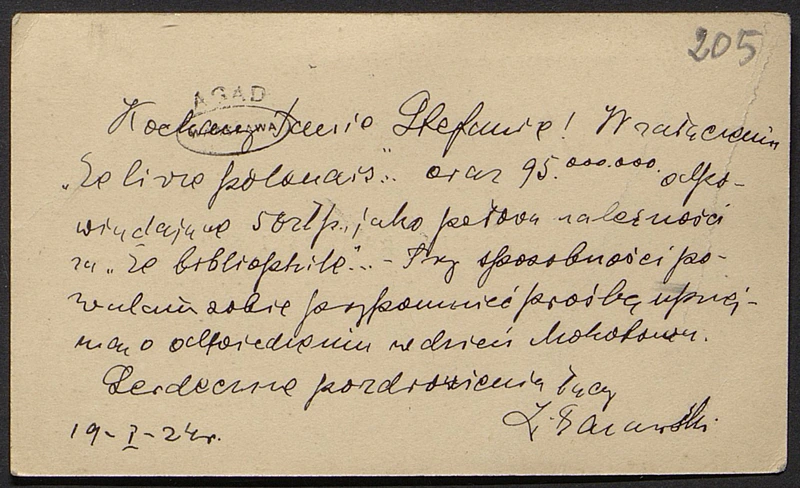 205
AGAD
WARSZAWA
Kochany Panie Stefanie! W załączeniu
„Le livre polonais" oraz 95.000.000. odpo-
wiadające 50 złp. jako połowa należności
za „Le bibliophile". - Przy sposobności po-
zwalam sobie przypomnieć prośbę uprzej-
mą o odwiedzeniu w dzień Mokotowa.
Serdeczne pozdrowienia łączy
19-I-24r.